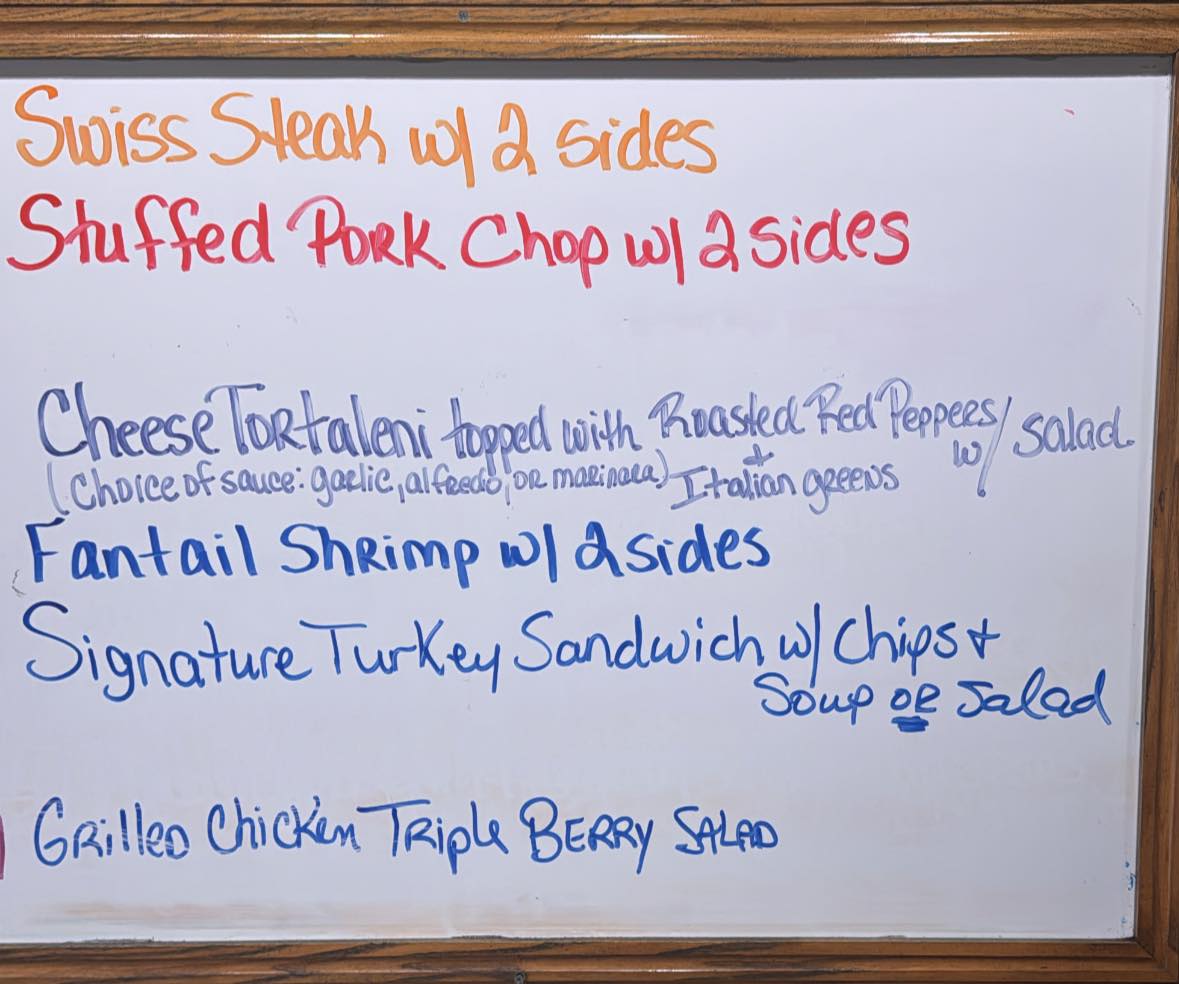 Swiss Steak w/ 2 sides
Stuffed Pork Chop w/ 2 sides
Cheese Tortaleni topped with Roasted Red Peppers w/ Salad
(Choice of sauce: garlic, alfredo, or marinara) + Italian greens
Fantail Shrimp w/ 2 sides
Signature Turkey Sandwich w/ Chips +
Soup or Salad
Grilled Chicken Triple Berry Salad